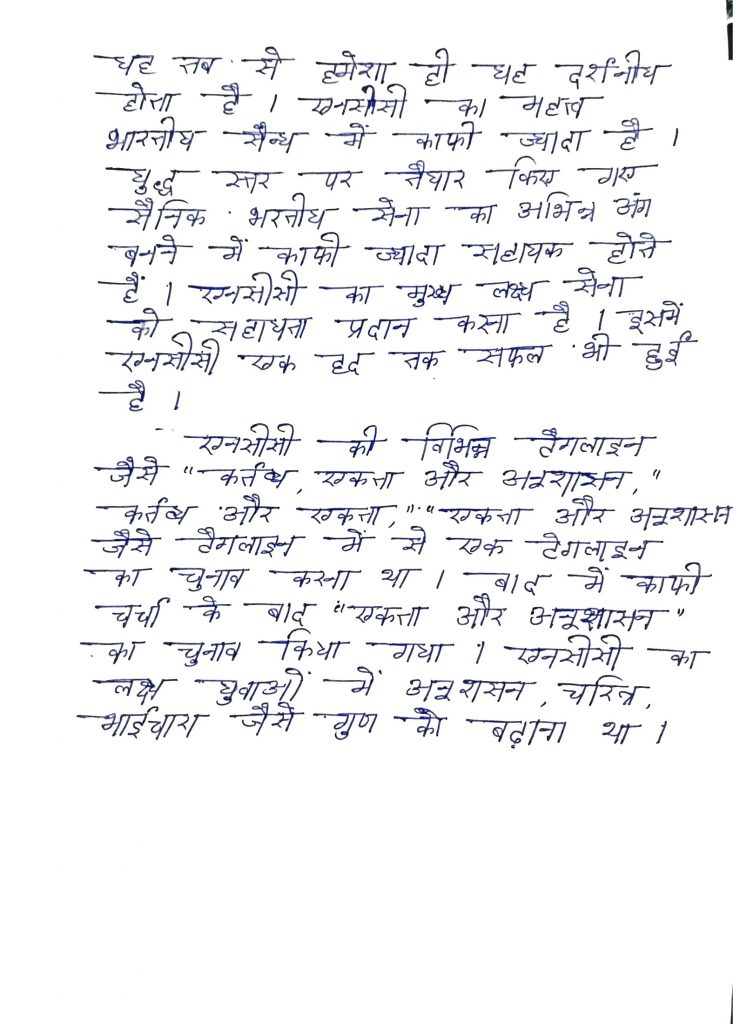 यह तब से हमेशा ही यह दर्शनीय
होता है । एनसीसी का महत्त्व
भारतीय सैन्य में काफी ज्यादा है ।
युद्ध स्तर पर तैयार किए गए
सैनिक भरतीय सेना का अभिन्न अंग
बनने में काफी ज्यादा सहायक होते
हैं । एनसीसी का मुख्य लक्ष्य सेना
को सहायता प्रदान करना है । इसमें
एनसीसी एक हद तक सफल भी हुई
है ।
एनसीसी की विभिन्न टैगलाइन
जैसे "कर्तव्य, एकता और अनुशासन,"
कर्तव्य और एकता," "एकता और अनुशासन
जैसे टैगलाइन में से एक टैगलाइन
का चुनाव करना था । बाद में काफी
चर्चा के बाद "एकता और अनुशासन"
का चुनाव किया गया । एनसीसी का
लक्ष युवाओं में अनुशसन, चरित्र,
भाईचारा जैसे गुण को बढ़ाना था ।